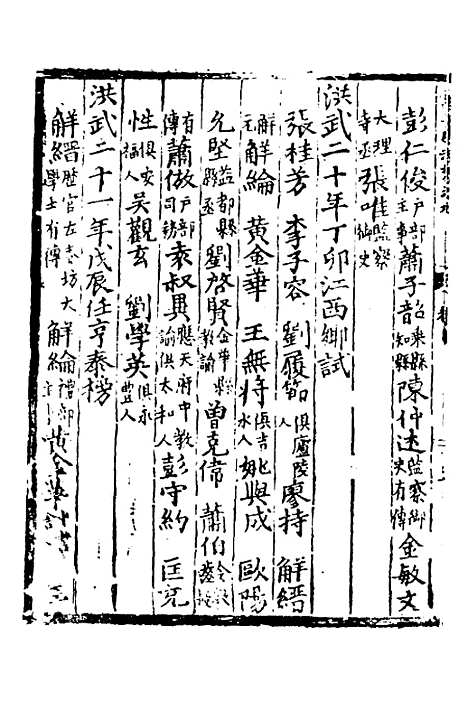 彭仁俊戶部主事蕭子韶樂縣知縣陳仲述監察御史有傳金敏文
大理寺丞張唯監察御史
洪武二十年丁卯江西鄉試
張桂芳 李子容 劉履節俱廬陵人廖持 解縉
解元解綸 黃金華 王無將俱吉水人姚與成 歐陽
允堅監都縣縣丞劉啓賢金華縣教諭曾克偉 蕭伯
有傳蕭倣戶部司務袁叔異應天府中教諭俱太和人彭守約 匡亮
性俱安福人吳觀玄 劉學英俱永豐人
洪武二十一年戊辰任亨泰榜
解縉歷官左春坊大學士有傳 解綸禮部主 黃金華